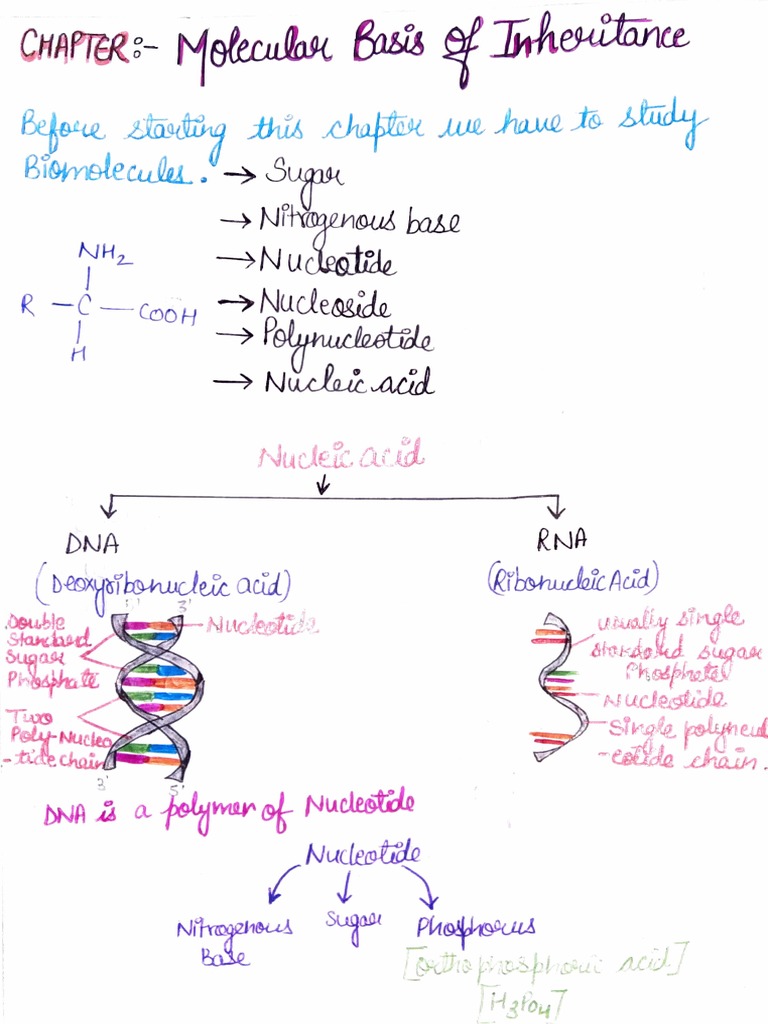 CHAPTER:- Molecular Basis of Inheritance
Before starting this chapter we have to study
Biomolecules. → Sugar
→ Nitrogenous base
→ Nucleotide
→ Nucleoside
→ Polynucleotide
→ Nucleic acid
NH₂
R — C — COOH
H
Nucleic acid
DNA
(Deoxyribonucleic acid)
RNA
(Ribonucleic Acid)
Double
Standard
Sugar
Phosphate
Two
Poly-Nucleo
-tide chain
3'
Nucleotide
3'
5'
usually single
standard sugar
Phosphetel
Nucleotide
Single polynucl
-eotide chain.
DNA is a polymer of Nucleotide
Nucleotide
Nitrogenous
Base
Sugar
Phosphorus
[orthophosphoric acid]
[H₃PO₄]